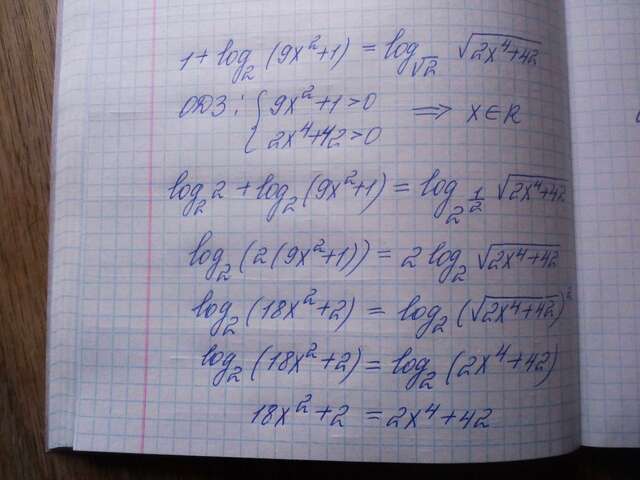 1 + log₂ (9x² + 1) = log_√2 √(2x⁴ + 42)
ОДЗ: { 9x² + 1 > 0 ⟹ x ∈ R
2x⁴ + 42 > 0
log₂ 2 + log₂ (9x² + 1) = log_{2^{1/2}} √(2x⁴ + 42)
log₂ (2(9x² + 1)) = 2 log₂ √(2x⁴ + 42)
log₂ (18x² + 2) = log₂ (√(2x⁴ + 42))²
log₂ (18x² + 2) = log₂ (2x⁴ + 42)
18x² + 2 = 2x⁴ + 42